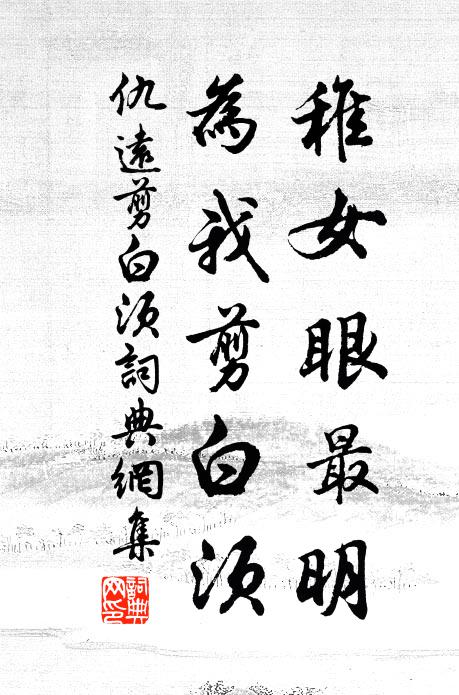 稚女眼最明
為我剪白須
仇遠剪白須詞典網集
詞典
网印